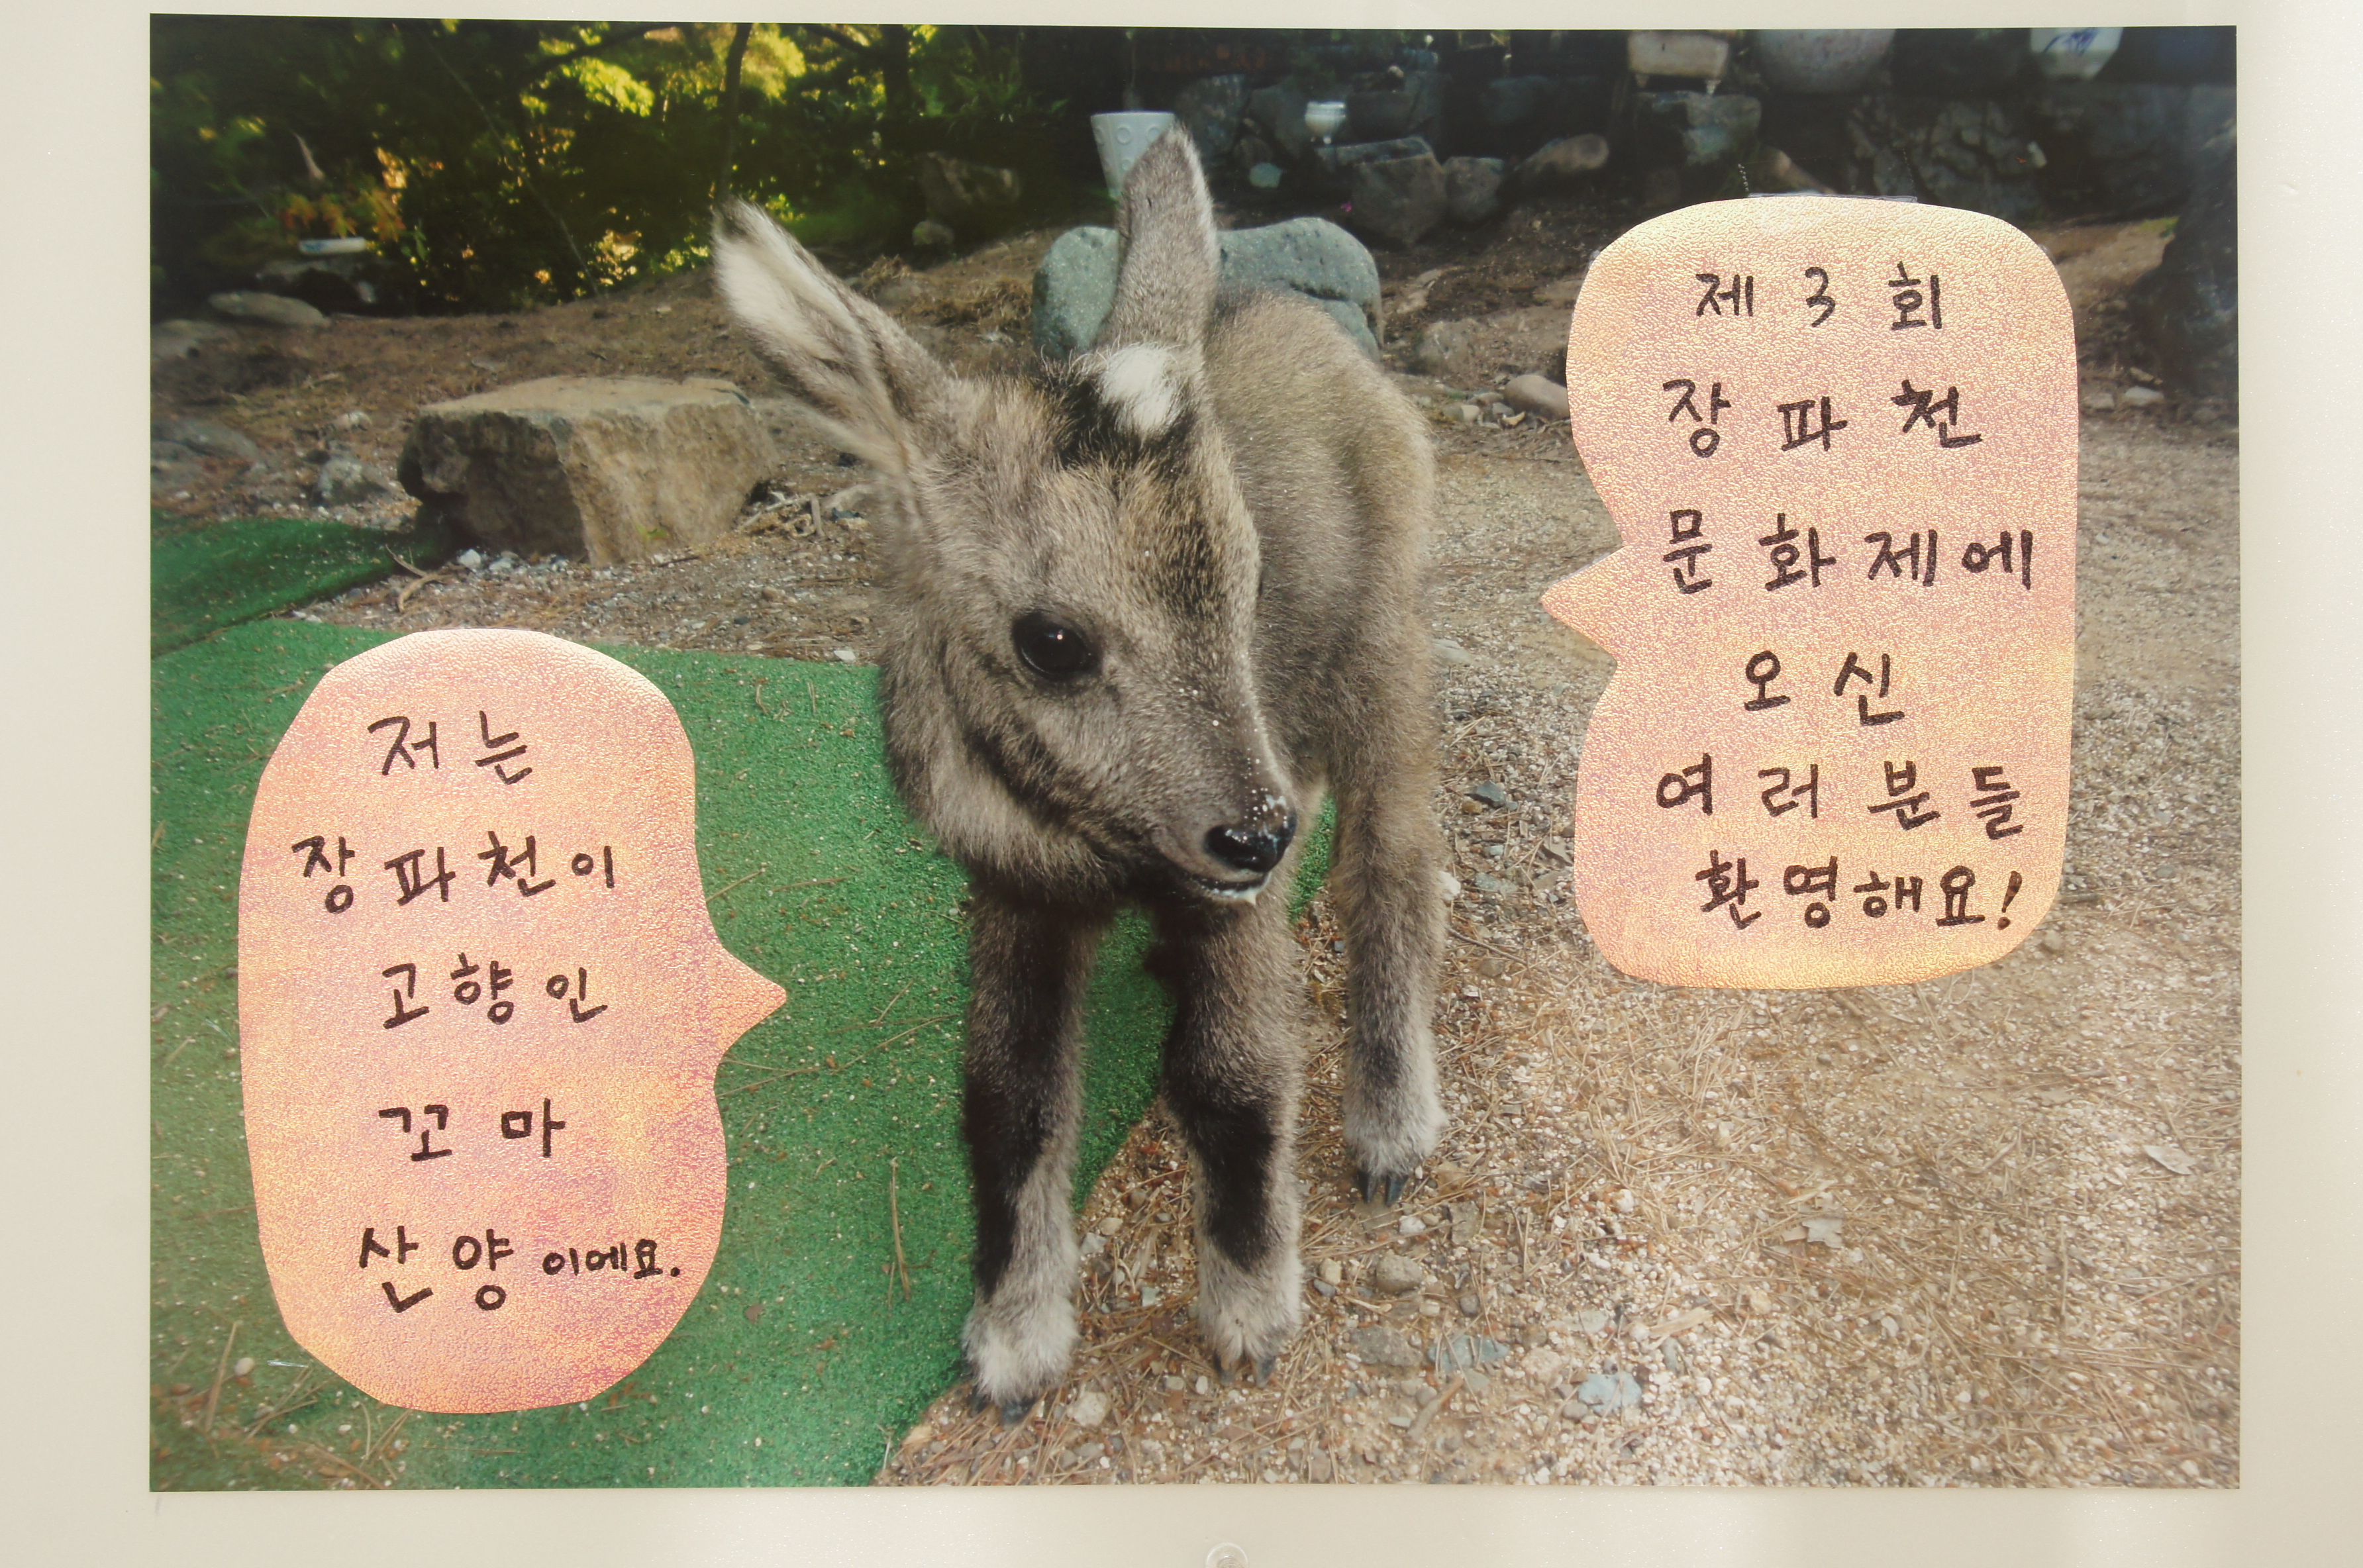 저는
장파천이
고향인
꼬마
산양이에요.
제3회
장파천
문화제에
오신
여러분들
환영해요!